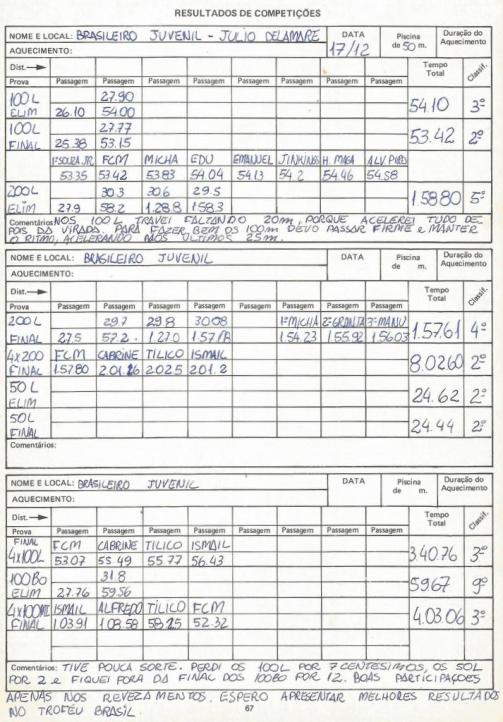 RESULTADOS DE COMPETIÇÕES
NOME E LOCAL: BRASILEIRO JUVENIL - JULIO DELAMARE DATA 17/12 Piscina de 50 m. Duração do Aquecimento
AQUECIMENTO:
Dist. → Tempo Total Classif.
Prova Passagem Passagem Passagem Passagem Passagem Passagem Passagem Passagem
100 L 27.90
ELIM 26.10 54.00 54.10 3º
100 L 27.77
FINAL 25.38 53.15 53.42 2º
1º SOUZA JR. FCM MICHA EDU EMANUEL JINKINGS H. MAGA
53.35 53.42 53.83 54.04 54.13 54.2 54.46 54.58
200 L 30.3 30.6 29.5
ELIM 27.9 58.2 1.28.8 1.58.3 1.58.80 5º
Comentários: NOS 100 L TRAVEI FALTANDO 20m, PORQUE ACELEREI TUDO DE-
POIS DA VIRADA. PARA FAZER BEM OS 100m DEVO PASSAR FIRME E MANTER
O RITMO, ACELERANDO NOS ÚLTIMOS 25m.
NOME E LOCAL: BRASILEIRO JUVENIL DATA Piscina de m. Duração do Aquecimento
AQUECIMENTO:
Dist. → Tempo Total Classif.
Prova Passagem Passagem Passagem Passagem Passagem Passagem Passagem Passagem
200 L 29.7 29.8 30.08 1º MICHA 2º GRANTA 3º MANU
FINAL 27.5 57.2 1.27.0 1.54.23 1.55.92 1.56.03 1.57.61 4º
4x200 FCM CABRINE TILICO ISMAIL
FINAL 1.57.80 2.01.26 2.02.5 2.01.2 8.02.60 2º
50 L
ELIM 24.62 2º
50 L
FINAL 24.44 2º
Comentários:
NOME E LOCAL: BRASILEIRO JUVENIL DATA Piscina de m. Duração do Aquecimento
AQUECIMENTO:
Dist. → Tempo Total Classif.
Prova Passagem Passagem Passagem Passagem Passagem Passagem Passagem Passagem
FINAL FCM CABRINE TILICO ISMAIL
4x100L 53.07 55.49 55.77 56.43 3.40.76 3º
100 BO 31.8
ELIM 27.76 59.56 59.67 9º
4x100MI ISMAIL ALFREDO TILICO FCM
FINAL 1.03.91 1.08.58 58.25 52.32 4.03.06 3º
Comentários: TIVE POUCA SORTE. PERDI OS 100L POR 7 CENTESIMOS, OS 50L
POR 2 E FIQUEI FORA DA FINAL DOS 100BO POR 12. BOAS PARTICIPAÇOES
APENAS NOS REVEZAMENTOS. ESPERO APRESENTAR MELHORES RESULTADO
NO TROFÉU BRASIL.
67